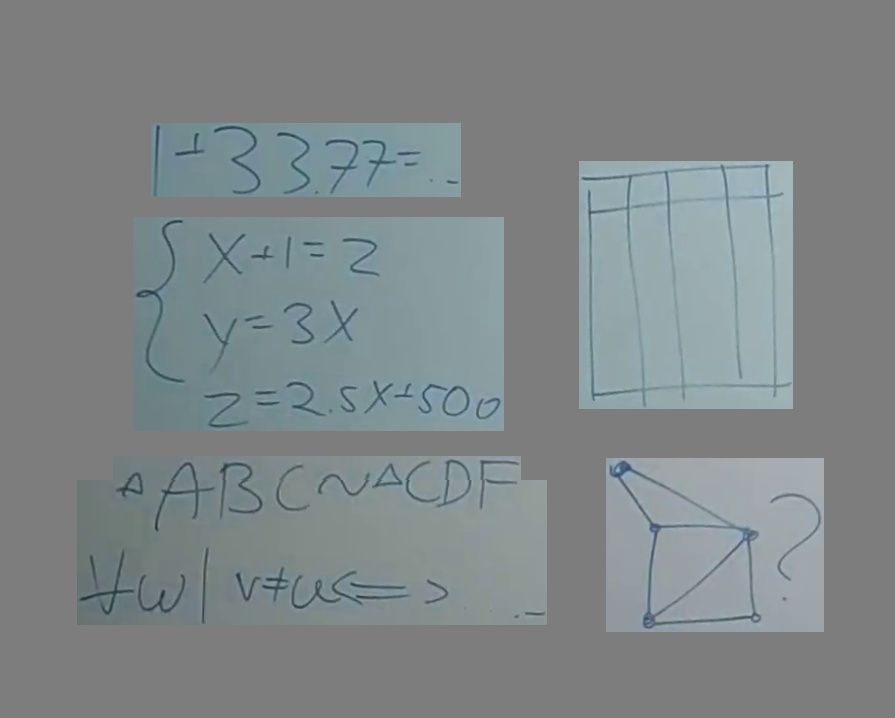 1+33.77=...
x+1=2
y=3x
z=2.5x+500
△ABC~△CDF
∀w|v≠u<=>...
?